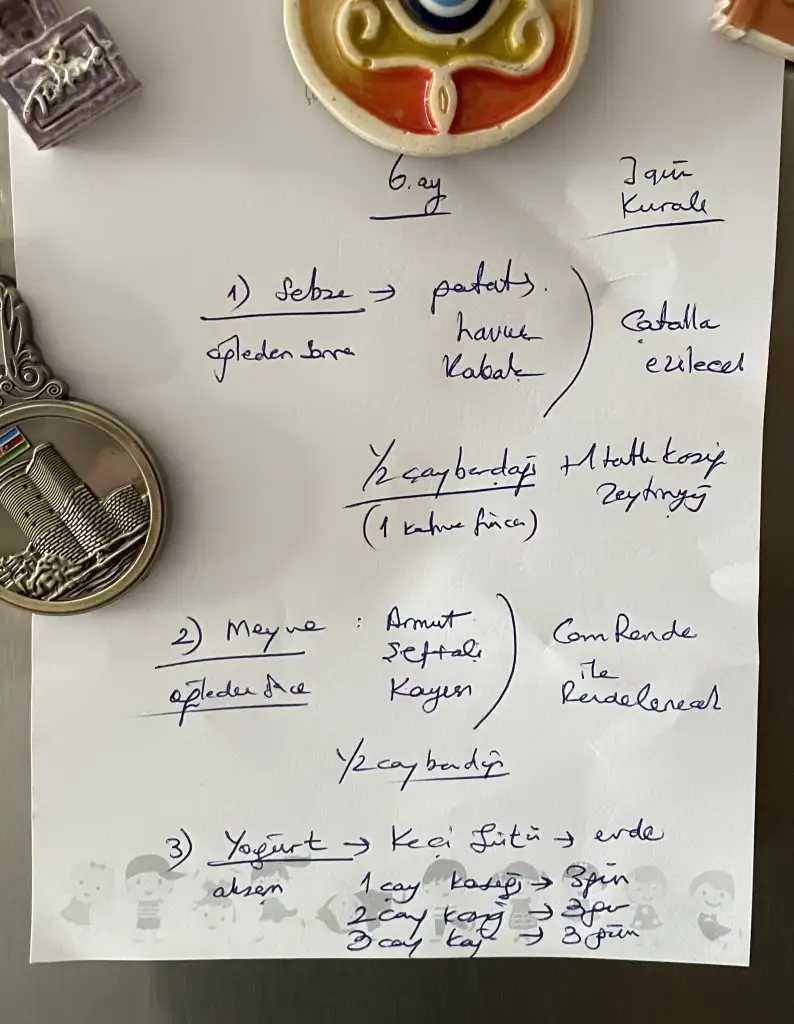 6. ay
3 gün
Kuralı
1) Sebze → patates.
havuç
Kabak
öğleden sonra
Çatalla
ezilecek
1/2 çay bardağı +1 tatlı kaşığı
zeytinyağı
(1 kahve fincanı)
2) Meyve : Armut
Şeftali
Kayısı
öğleden önce
Cam Rende
ile
Rendelenecek
1/2 çay bardağı
3) Yoğurt → Keçi Sütü → evde
akşam
1 çay kaşığı → 3 gün
2 çay kaşığı → 3 gün
3 çay kaş → 3 gün